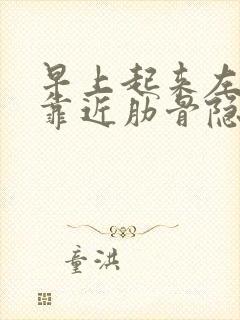 早上起来左
靠近肋骨隐
童洪